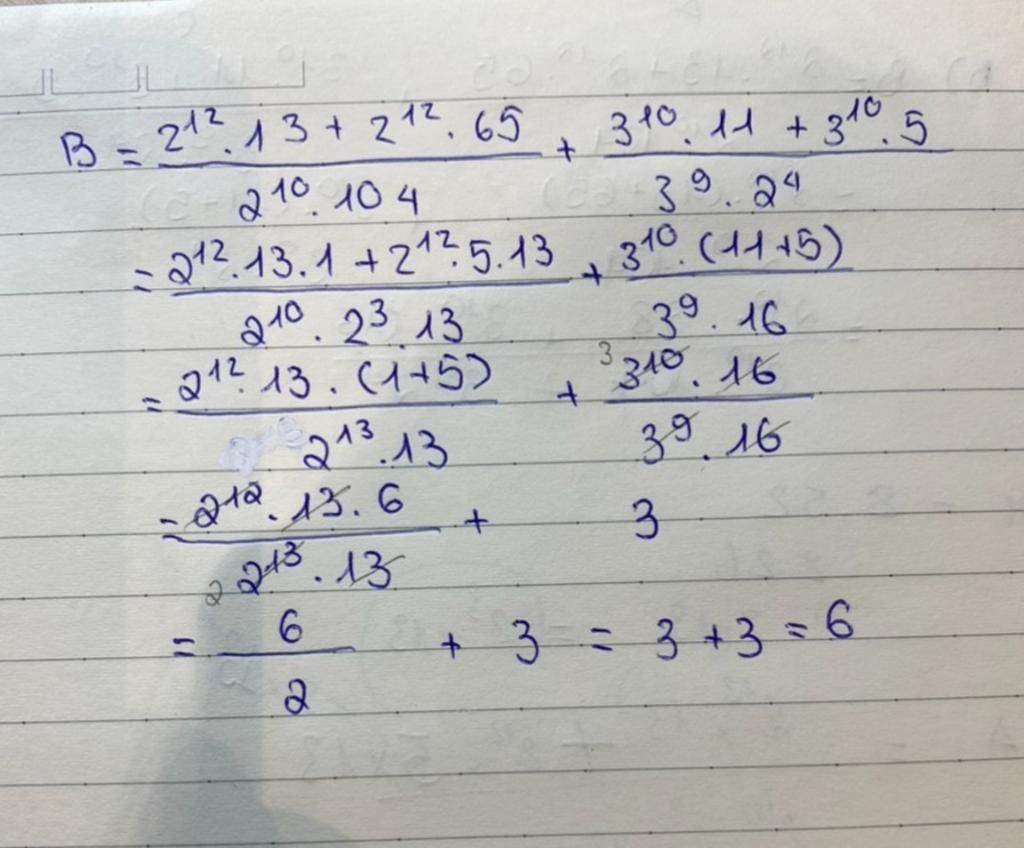 B = \frac{2^{12} . 13 + 2^{12} . 65}{2^{10} . 104} + \frac{3^{10} . 11 + 3^{10} . 5}{3^{9} . 2^{4}}
= \frac{2^{12} . 13 . 1 + 2^{12} . 5 . 13}{2^{10} . 2^{3} . 13} + \frac{3^{10} . (11+5)}{3^{9} . 16}
= \frac{2^{12} . 13 . (1+5)}{2^{13} . 13} + \frac{^{3} 3^{10} . 16}{3^{9} . 16}
= \frac{2^{12} . 13 . 6}{_{2} 2^{13} . 13} + 3
= \frac{6}{2} + 3 = 3 + 3 = 6